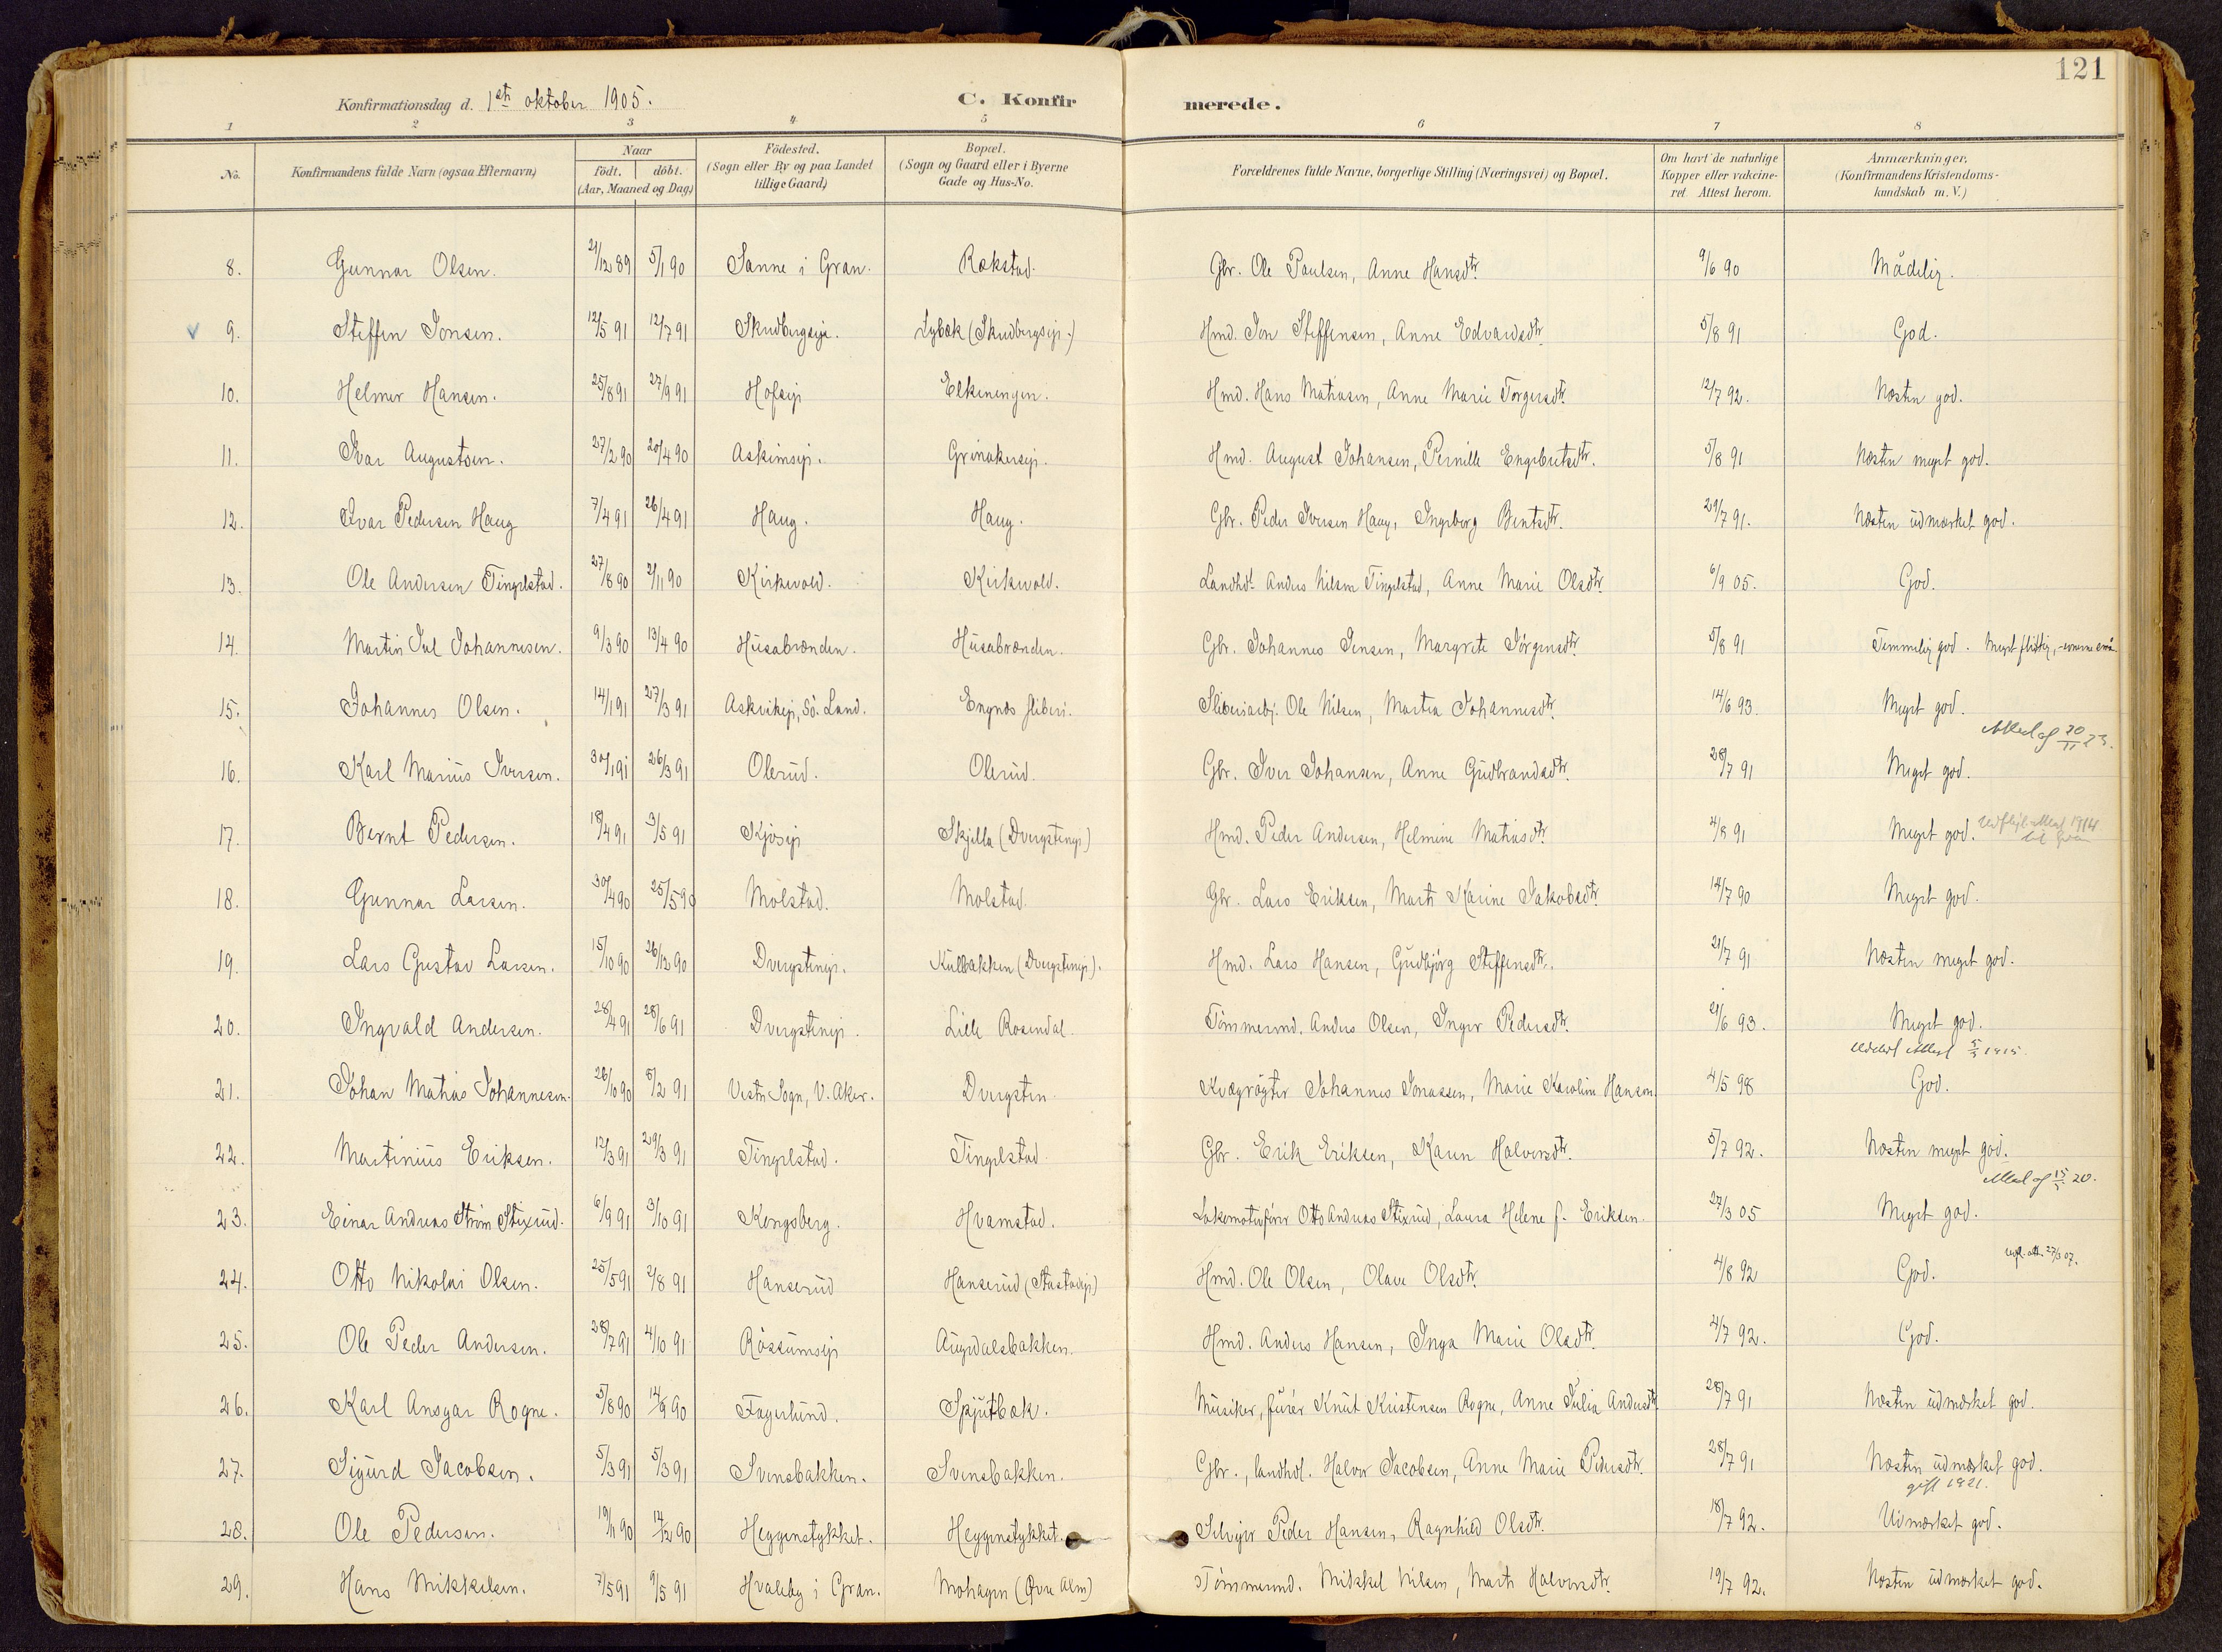 121
Konfirmationsdag d. 1ste oktober 1905. C. Konfirmerede.
1 2 3 4 5 6 7 8
No. Konfirmandens fulde Navn (ogsaa Efternavn) Naar født. døbt. (Aar, Maaned og Dag) Fødested. (Sogn eller By og paa Landet tillige Gaard) Bopæl. (Sogn og Gaard eller i Byerne Gade og Hus-No. Forældrenes fulde Navne, borgerlige Stilling (Næringsvei) og Bopæl. Om havt de naturlige Kopper eller vakcineret. Attest herom. Anmærkninger. (Konfirmandens Kristendomskundskab m. V.)
8. Gunnar Olsen. 21/12 89 5/1 90 Sanne i Gran. Rækstad. Gbr. Ole Paulsen, Anne Hansdtr. 9/6 90 Mådelig.
9. Steffen Jonsen. 12/5 91 12/7 91 Skudbergseje. Lybæk (Skudbergsejr.) Hmd. Jon Steffensen, Anne Edvardsdtr. 5/8 91 God.
10. Helmer Hansen. 25/8 91 27/9 91 Hofsejr Elkeningen. Hmd. Hans Matiasen, Anne Marie Torgersdtr. 12/7 92. Næsten god.
11. Ivar Augustsen. 27/2 90 20/4 90 Askimsejr. Grinakersejr. Hmd. August Johansen, Pernille Engebretsdtr. 5/8 91 Næsten meget god.
12. Ivar Pedersen Haug 7/4 91 26/4 91 Haug. Haug. Gbr. Peder Iversen Haug, Ingeborg Bentsdtr. 29/7 91. Næsten udmærket god.
13. Ole Andersen Tingelstad. 27/8 90 2/11 90 Kirkevold. Kirkevold. Landhdl. Anders Nilsen Tingelstad, Anne Marie Olsdtr. 6/9 05. God.
14. Martin Jul Johannesen. 9/3 90 13/4 90 Husabrænden. Husabrænden. Gbr. Johannes Jensen, Margrete Jørgensdtr. 5/8 91 Temmelig god. Meget flittig, -evnerne små
15. Johannes Olsen. 14/1 91 27/3 91 Askvikejr, Sö. Land. Engnæs sliberi. Sliberiarbj. Ole Nilsen, Martea Johannesdtr. 14/6 93. Meget god.
Attest af 20/11 23.
16. Karl Marius Iversen. 30/1 91 26/3 91 Olerud. Olerud. Gbr. Iver Johansen, Anne Gudbrandsdtr. 28/7 91 Meget god.
17. Bernt Pedersen. 18/4 91 3/5 91 Kjösejr Skjella (Dvergstenejr) Hmd. Peder Andersen, Helmine Matiasdtr. 4/8 91 Meget god. 1914
18. Gunnar Larsen. 30/4 90 25/5 90 Molstad. Molstad. Gbr. Lars Eriksen, Marte Karine Jakobsdtr. 14/7 90 Meget god.
19. Lars Gustav Larsen. 15/10 90 26/12 90 Dvergstenejr. Kulbakken (Dvergstenejr). Hmd. Lars Hansen, Gudbjørg Steffensdtr. 21/7 91 Næsten meget god.
20. Ingvald Andersen. 28/4 91 28/6 91 Dvergstenejr. Lille Rosendal. Tømmermd. Anders Olsen, Inger Pedersdtr. 21/6 93. Meget god.
Uddelt Attest 1915.
21. Johan Matias Johannesen. 26/10 90 8/2 91 Vestre Sogn, V. Aker. Dvergsten. Kvægrøgter Johannes Jonassen, Marie Karoline Hansen. 4/5 98 God.
22. Martinius Eriksen. 12/3 91 29/3 91 Tingelstad. Tingelstad. Gbr. Erik Eriksen, Karen Halvorsdtr. 5/7 92. Næsten meget god.
23. Einar Andreas Strøm Stixrud. 6/9 91 3/10 91 Kongsberg. Hvamstad. Lokomotivfører Otto Andreas Stixrud, Laura Helene f. Eriksen. 27/3 05 Meget god.
24. Otto Nikolai Olsen. 25/5 91 2/8 91 Hanserud Hanserud (Stastadejr) Hmd. Ole Olsen, Olave Olsdtr. 4/8 92 God. utfl. att. 27/3 07.
25. Ole Peder Andersen. 28/7 91 4/10 91 Røssumsejr Augedalsbakken. Hmd. Anders Hansen, Inga Marie Olsdtr. 4/7 92. God.
26. Karl Ansgar Rogne. 5/8 90 14/9 90 Fagerlund. Spjutbæk. Musiker, furér Knut Kristensen Rogne, Anne Julia Andersdtr. 28/7 91 Næsten udmærket god.
27. Sigurd Jacobsen. 5/3 91 5/3 91 Svensbakken. Svensbakken. Gbr., landhdl. Halvor Jacobsen, Anne Marie Pedersdtr. 28/7 91 Næsten udmærket god.
gift 1921.
28. Ole Pedersen. 19/11 90 14/12 90 Heggenstykket. Heggenstykket. Selvejer Peder Hansen, Ragnhild Olsdtr. 18/7 92. Udmærket god.
29. Hans Mikkelsen. 7/5 91 9/5 91 Hvaleby i Gran. Mohagen (Øvre Alm) Tømmermd. Mikkel Nilsen, Marte Halvorsdtr. 19/7 92. Næsten udmærket god.